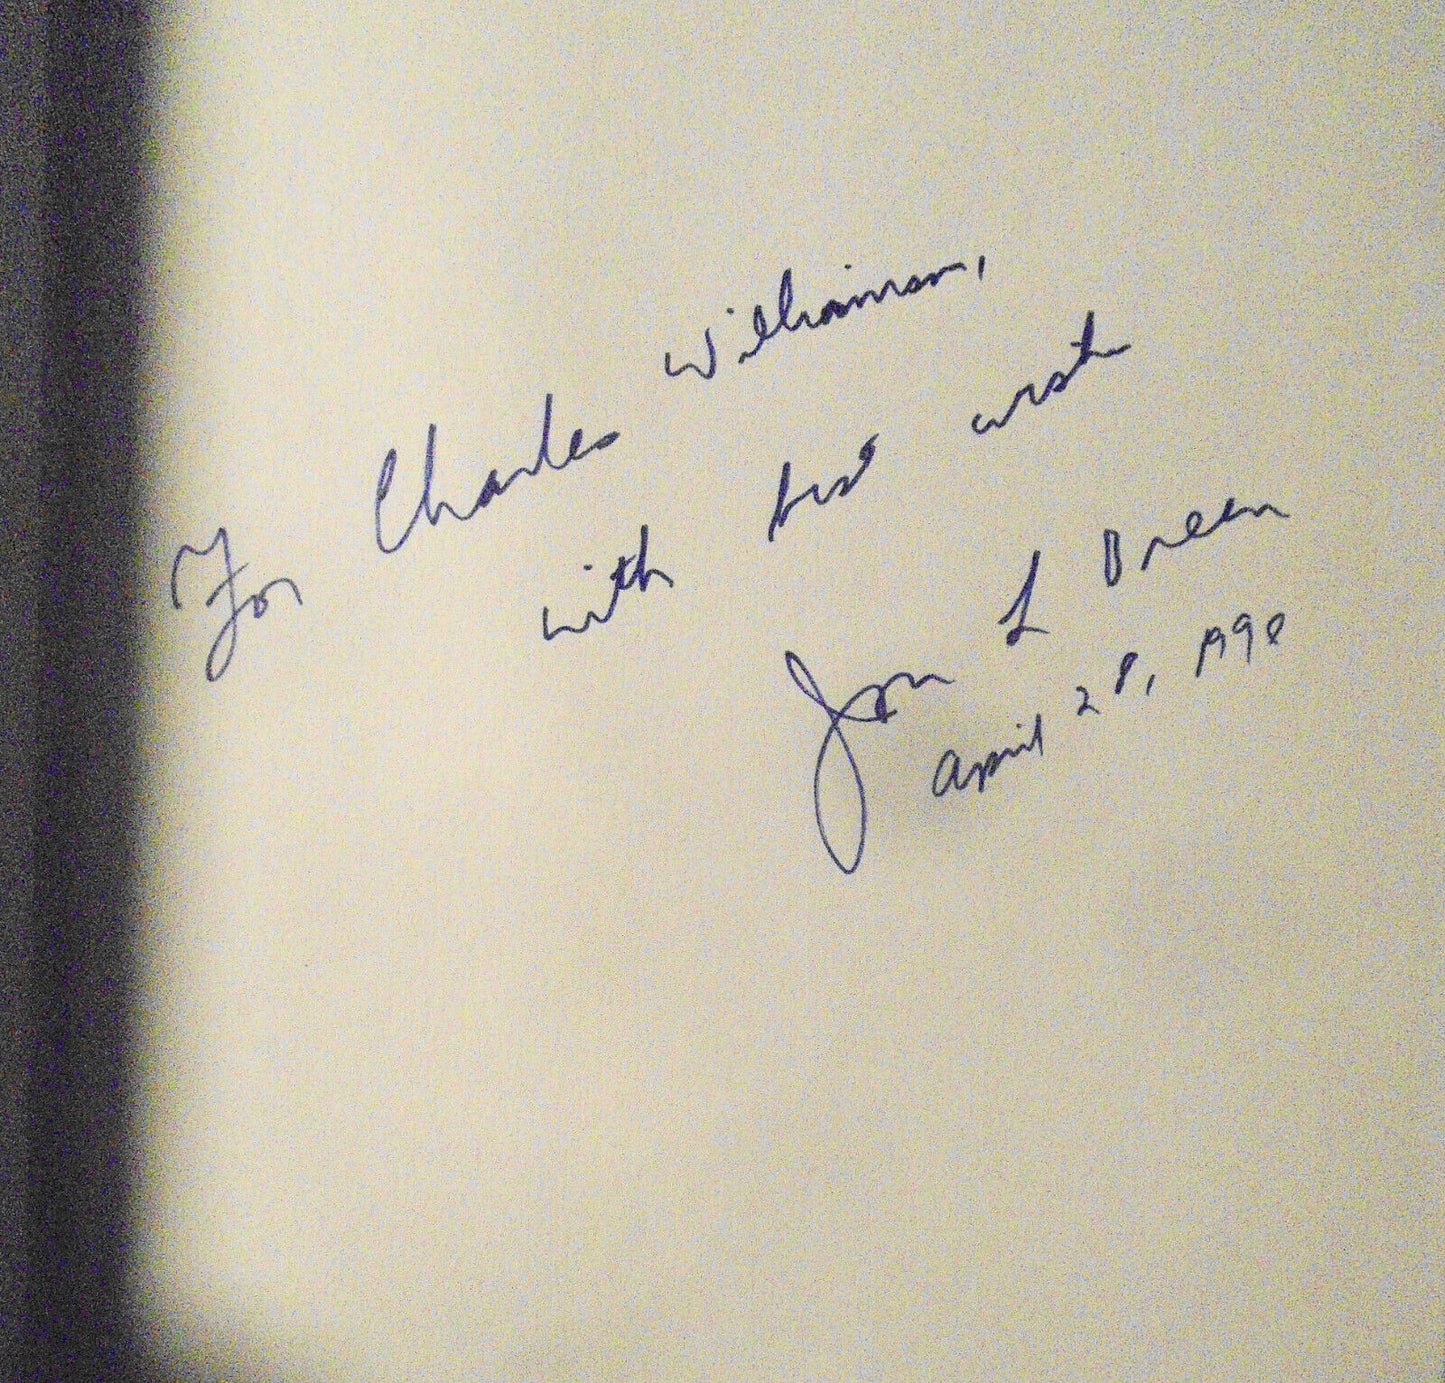 For Charles Williamson,
with best wishes
Jon L Breen
April 28, 1990